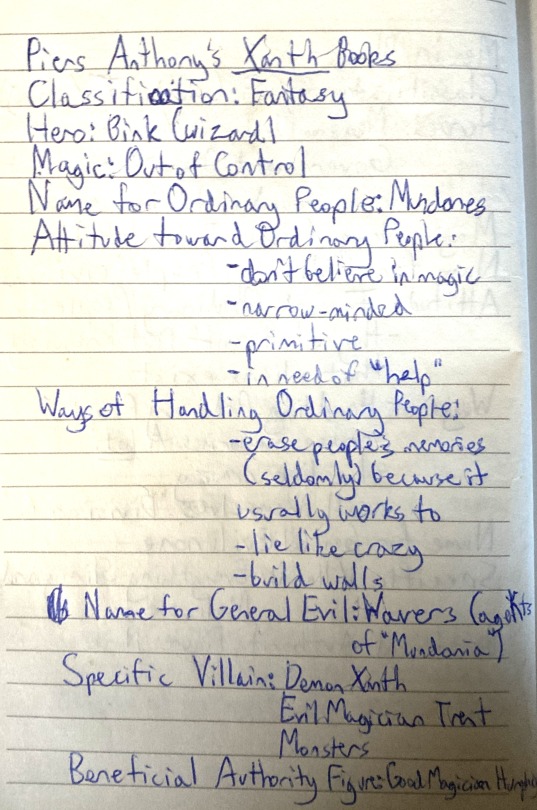 Piers Anthony's Xanth Books
Classification: Fantasy
Hero: Bink (wizard)
Magic: Out of Control
Name for Ordinary People: Mundanes
Attitude toward Ordinary People:
-don't believe in magic
-narrow-minded
-primitive
-in need of "help"
Ways of Handling Ordinary People:
-erase people's memories
(seldomly) because it
usually works to
-lie like crazy
-build walls
Name for General Evil: Wavers (agents
of "Mundania")
Specific Villain: Demon Xanth
Evil Magician Trent
Monsters
Beneficial Authority Figure: Good Magician